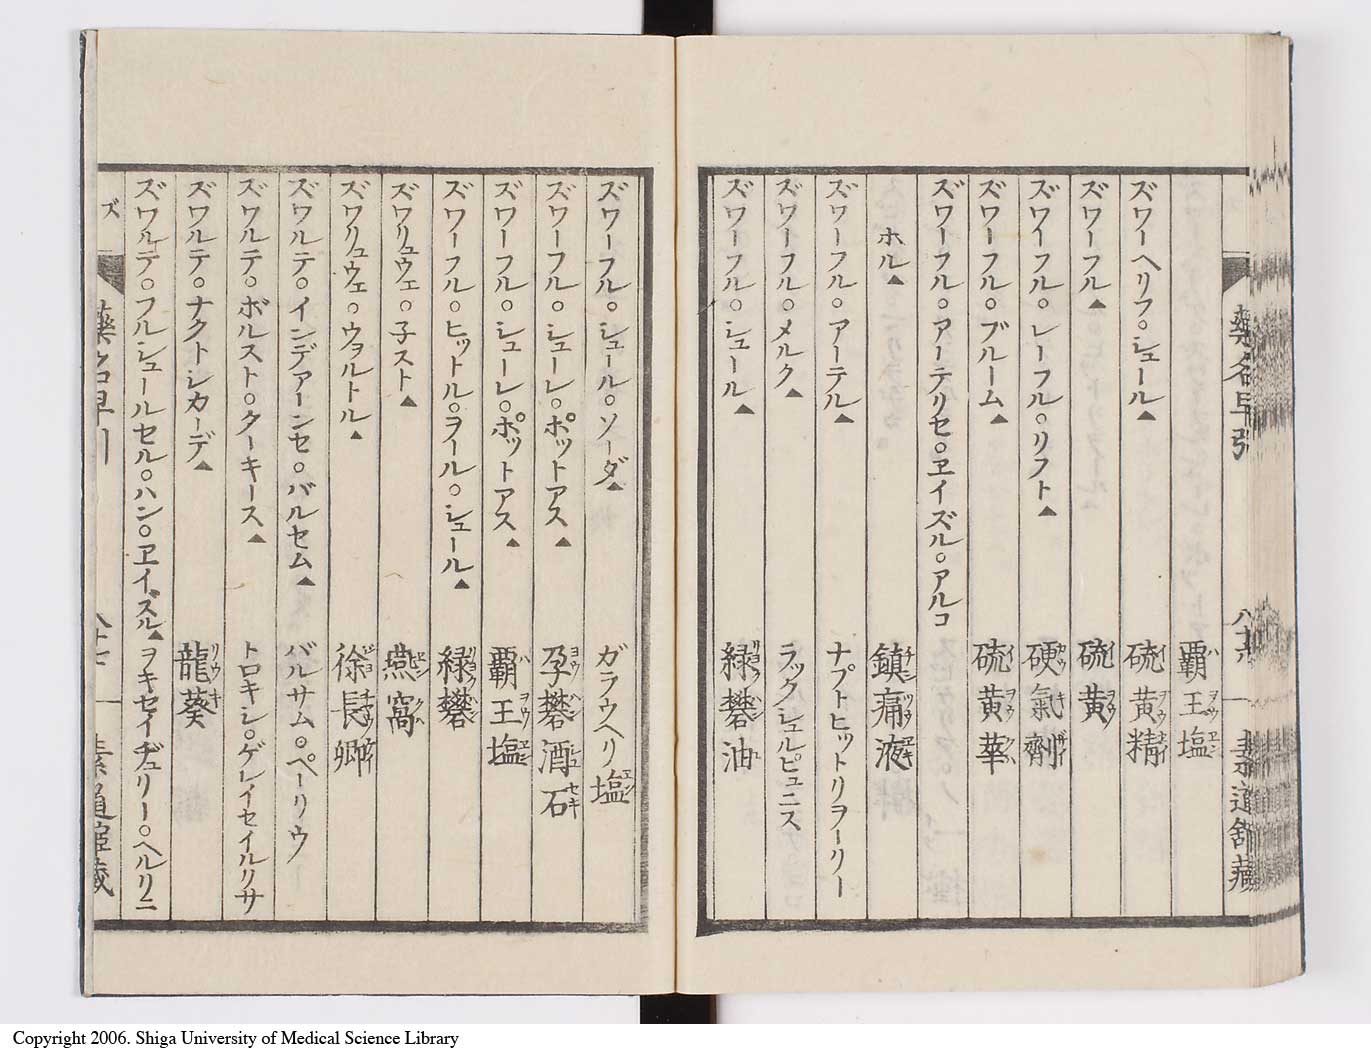 覇王塩
ハヲウエン
ズワーヘリフ○シュール▲ 硫黄精
ズワーフル▲ 硫黄
ズワイフル○レーフル○リフト▲ 硬氣劑
ズワーフル○ブルーム▲ 硫黄華
ズワーフル○アーテリセ○ヱイズル○アルコ
ホル▲ 鎮痛液
ズワーフル○アーテル▲ ナプトヒットリヲーリー
ズワーフル○メルク▲ ラックシュルピュニス
ズワーフル○シュール▲ 緑礬油
ズワーフル○シュール○ソーダ▲ ガラウヘリ塩
ズワーフル○シューレ○ポットアス▲ 孕礬酒石
ズワーフル○シューレ○ポットアス▲ 覇王塩
ズワーフル○ヒットル○ヲール○シュール▲ 緑礬
ズワリュウェ○子スト▲ 燕窩
ズワリュウェ○ウョルトル▲ 徐長卿
ズワルテ○インデアーンセ○バルセム▲ バルサム○ペーリウ
ズワルテ○ボルスト○クーキース▲ トロキシ○ゲレイセイルリサ
ズワルテ○ナクトシカーデ▲ 龍葵
ズワルテ○フルシュールセル○ハン○ヱイズル▲ ヲキセイヂュリー○ヘルリニ
藥名早引 八十六 素道舘藏
ズ 藥名早引 八十七
Copyright 2006. Shiga University of Medical Science Library